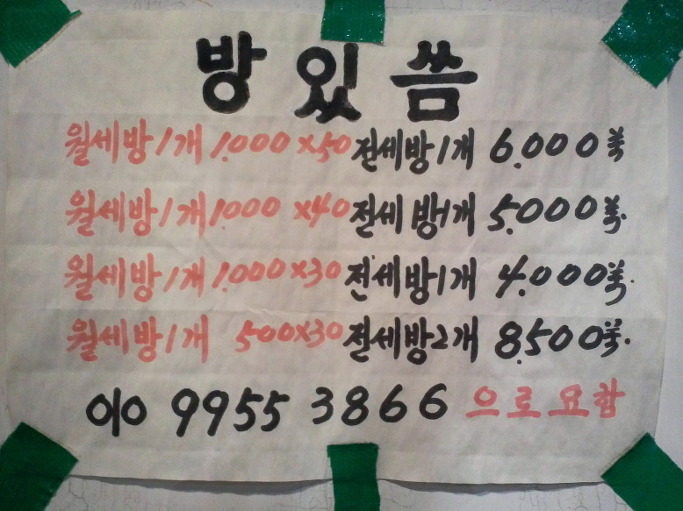 방 있 씀
월세방 1개 1.000 x50 전세방 1개 6.000 만
월세방 1개 1000 x40 전세 방1개 5.000 만.
월세방 1개 1.000x30 전세방 1개 4.000 만.
월세방 1개 500x30 전세방 2개 8.500 만.
010 9955 3866 으로 요함